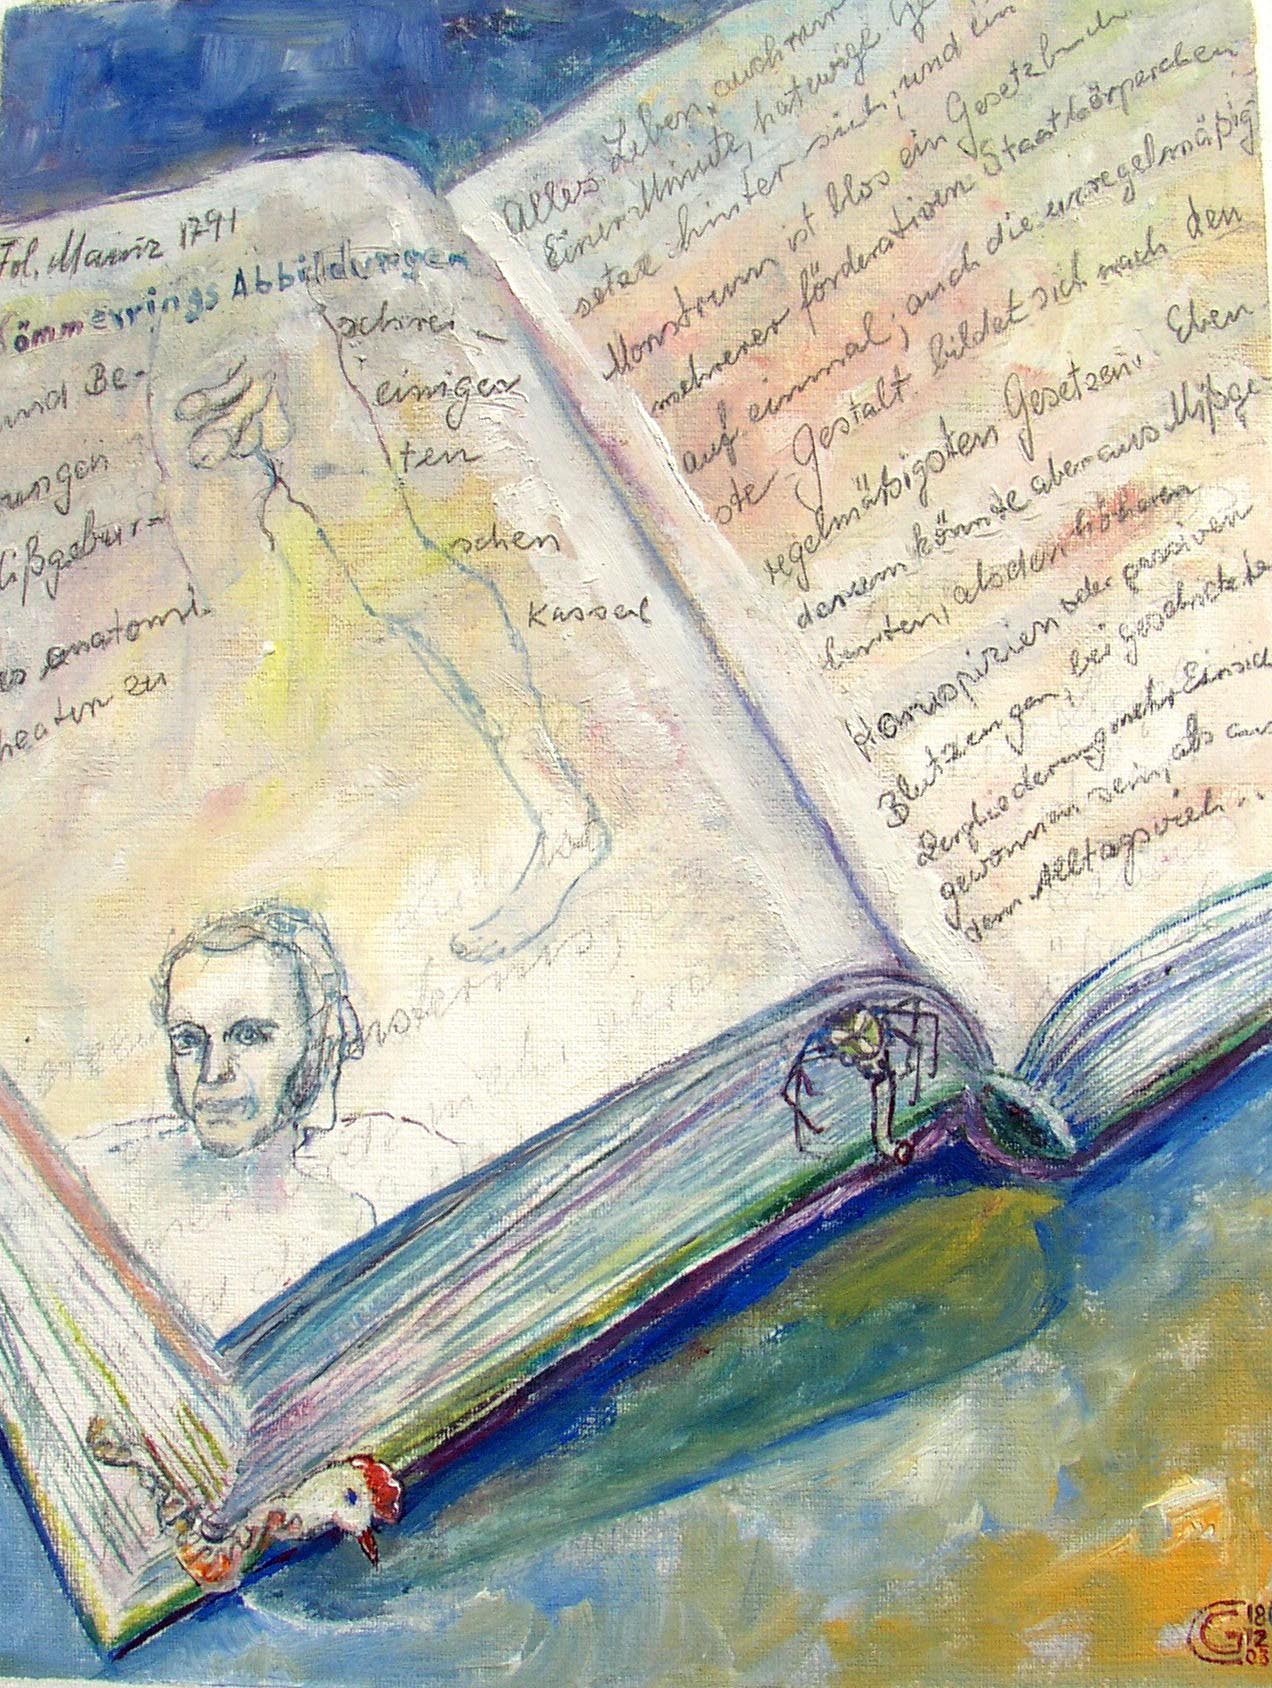 Fol. Mainz 1791
Sömmerrings Abbildungen
und Be-
schrei-
einigen
ungen
ten
ißgebur-
schen
Kassel
anatomi-
heaten zu
Alles Leben, auch nur
Einer Minute, hat ewige Ge
setze hinter sich, und ein
Monstrum ist blos ein Gesetzbuch
mehrerer förderativen Staatkörperchen
auf einmal; auch die unregelmäßig
ste Gestalt bildet sich nach den
regelmäßigsten Gesetzen. Eben
darum könnte aber aus Mißge-
burten, als den höheren
Haruspizien oder passiven
Blutzeugen, bei geschickter
Zergliederung mehr Einsic
gewonnen sein, als aus
dem Alltagsvieh...
G
18
12
03